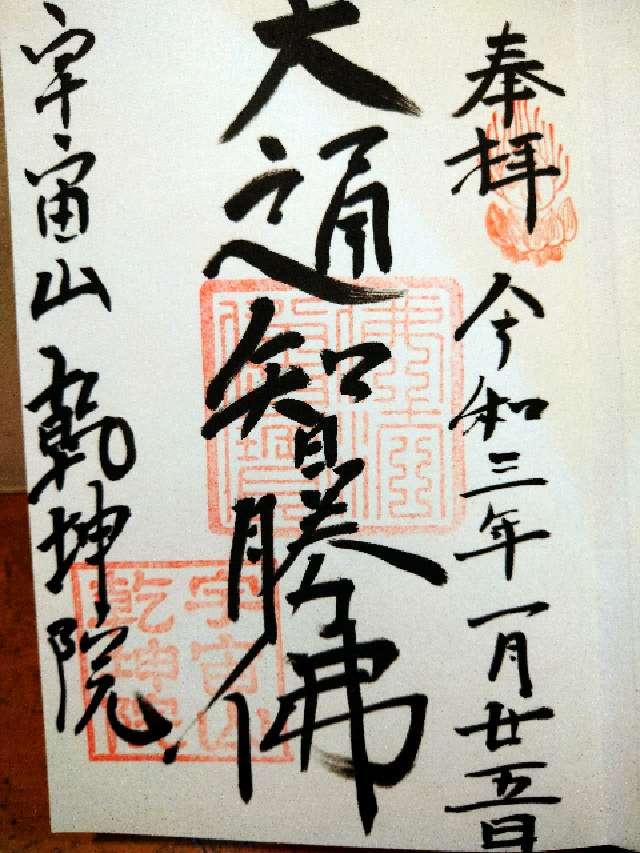 奉拝
令和三年一月廿五日
大通智勝佛
宇宙山
乾坤院
宇宙山
乾坤院